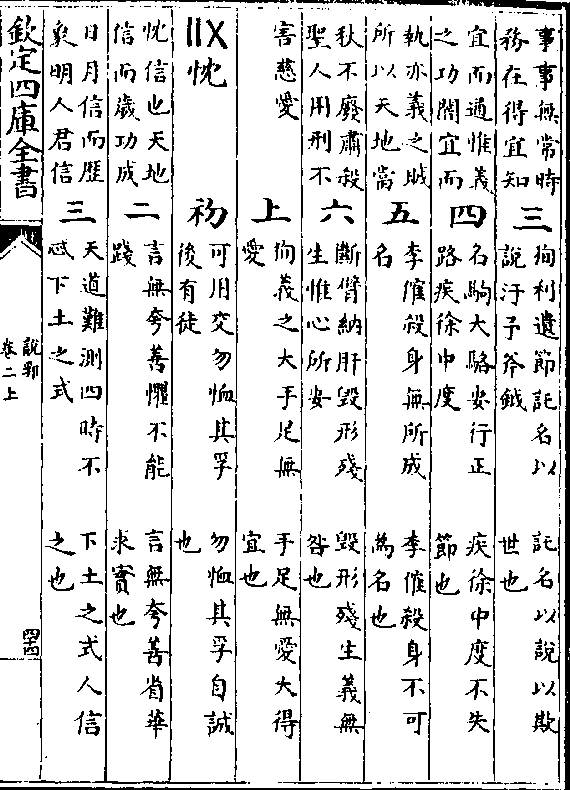 事事無常時
務在得宜知
三
徇利遺節託名以
說汙予斧鉞
託名以說以欺
世也
宜而通惟義
之功閡宜而
四
名駒大輅安行正
路疾徐中度
疾徐中度不失
節也
執亦義之賊
所以天地當
五
李傕殺身無所成
名
李傕殺身不可
為名也
秋不廢肅殺
聖人用刑不
六
斷臂納肝毀形殘
生惟心所安
毀形殘生義無
咎也
害慈愛
上
徇義之大手足無
愛
手足無愛大得
宜也
〢〤忱
初
可用交勿恤其孚
後有徒
勿恤其孚自誠
也
忱信也天地
信而歲功成
二
言無夸善懼不能
踐
言無夸善省華
求實也
日月信而厯
象明人君信
三
天道難測四時不
忒下土之式
下土之式人信
之也
欽定四庫全書
說郛
卷二上
四十四